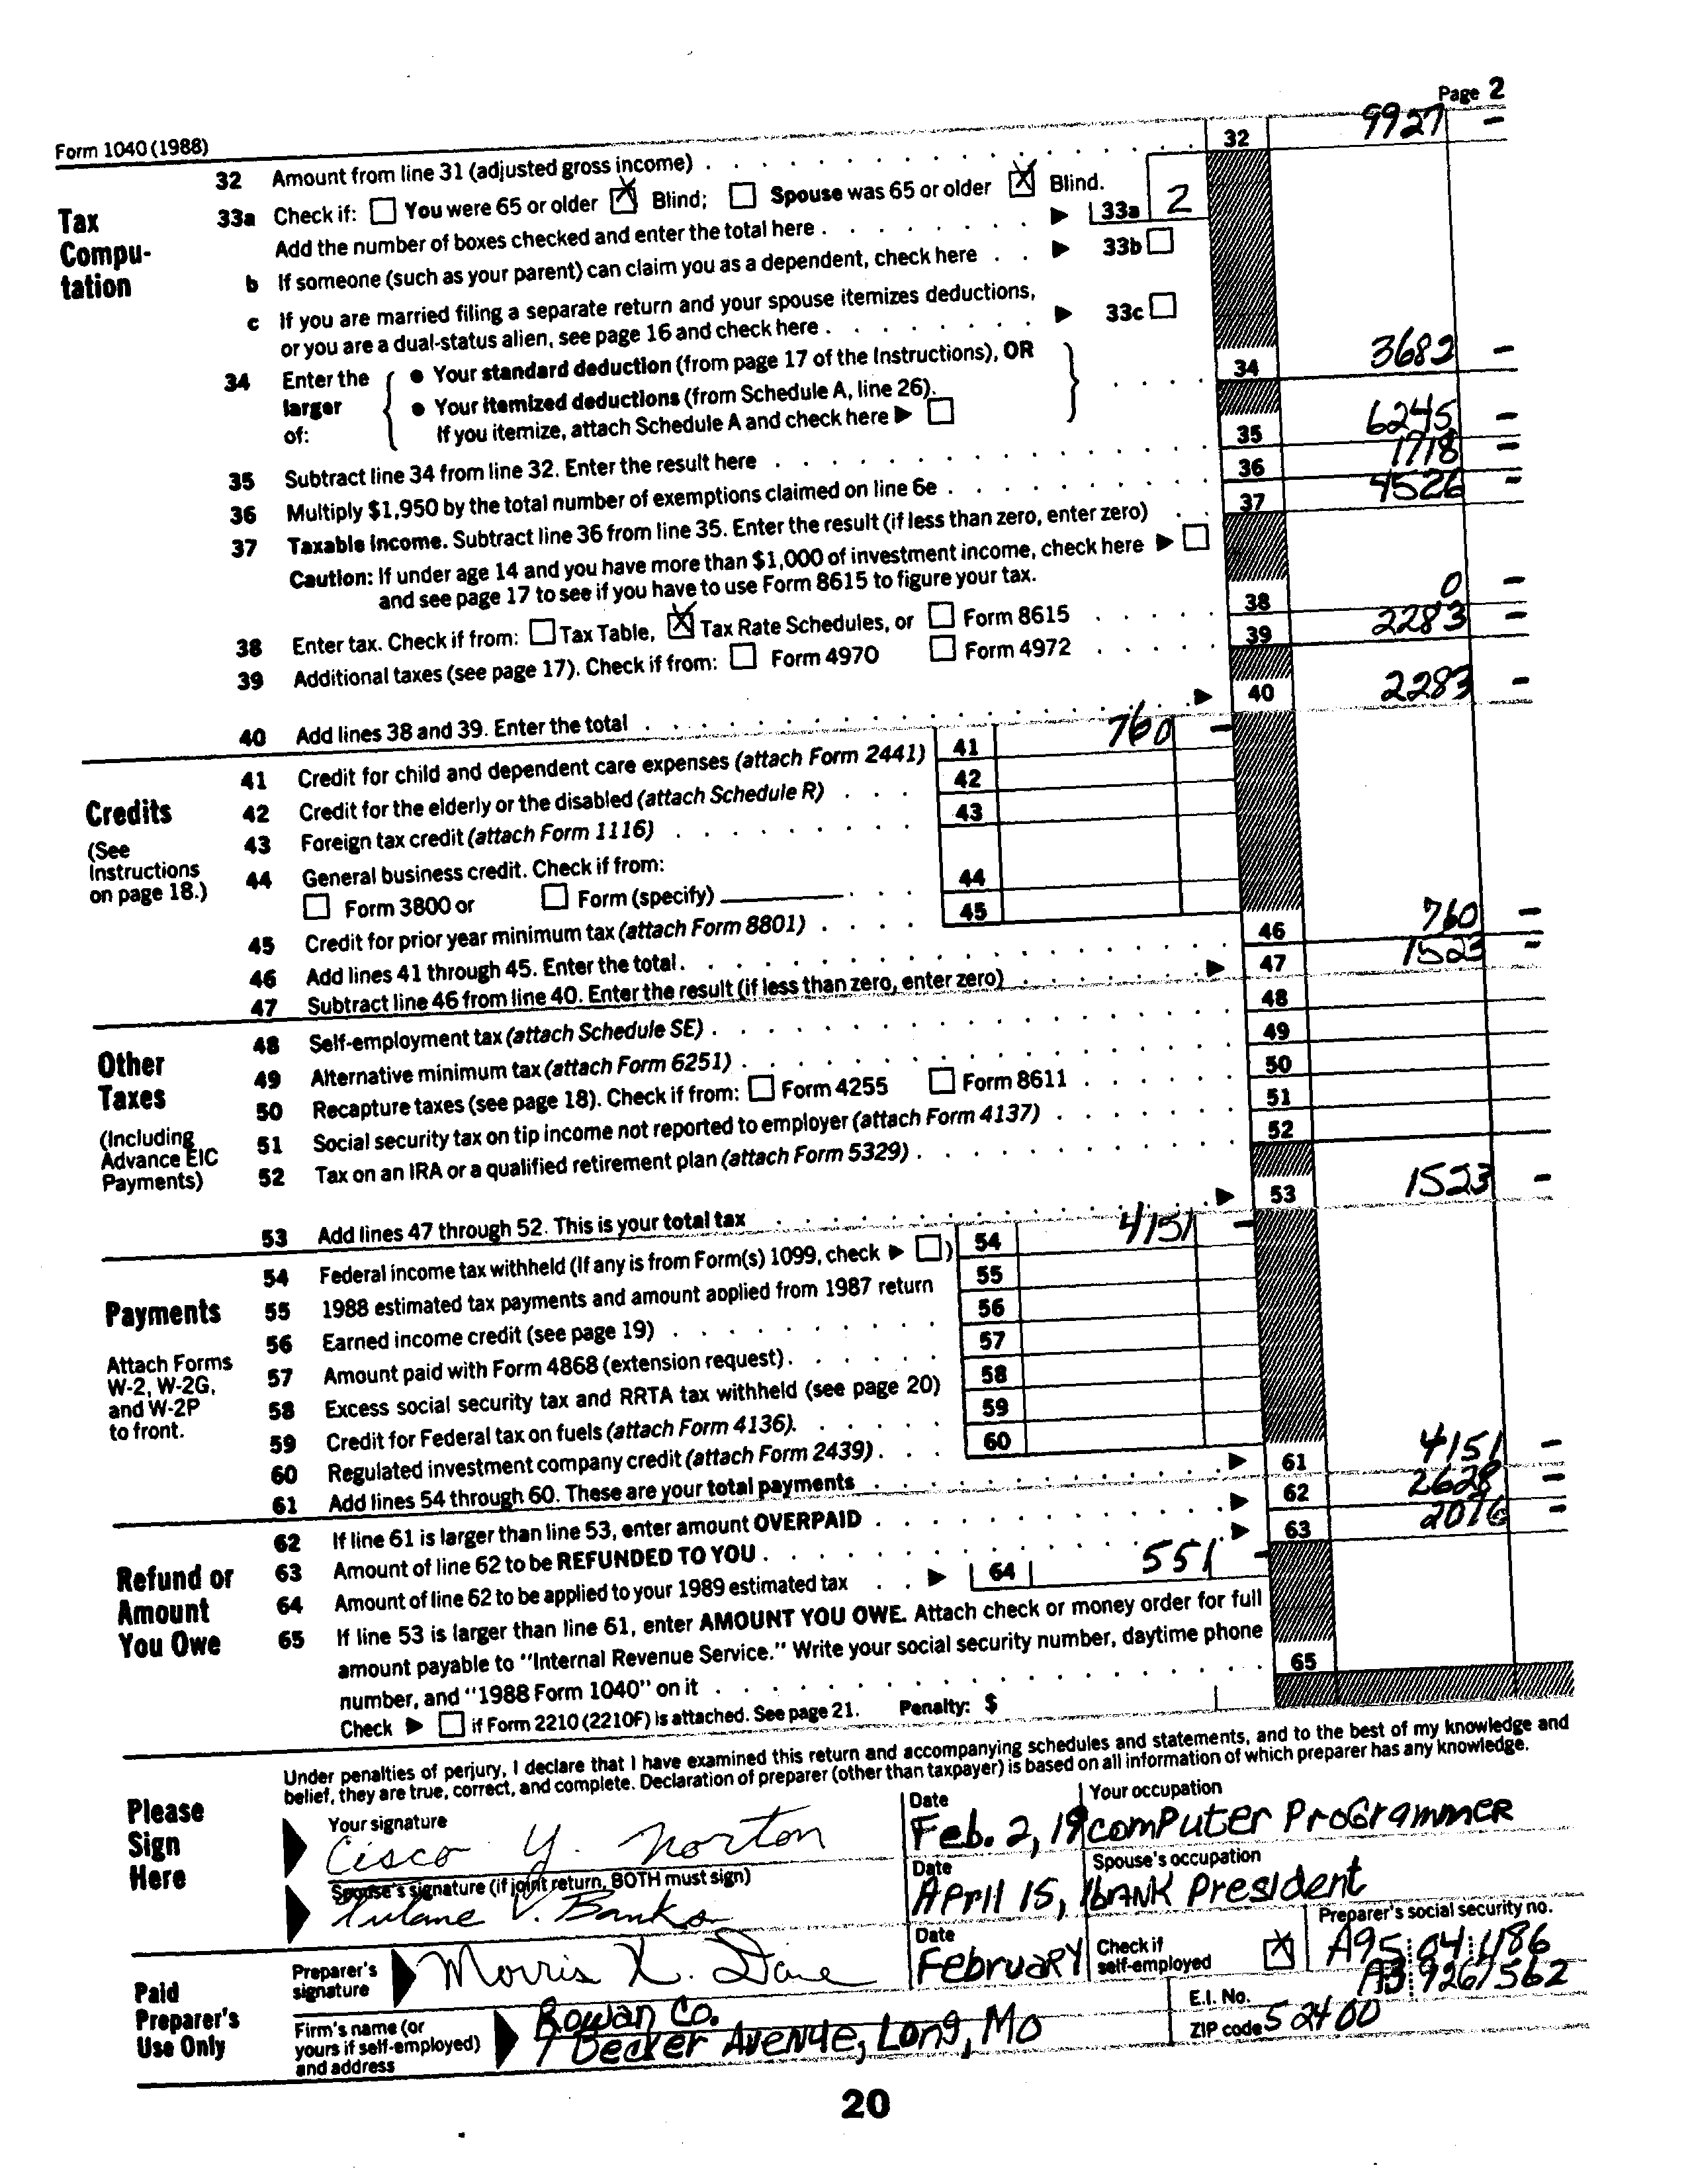 Page 2
Form 1040 (1988)
32 Amount from line 31 (adjusted gross income) 32 9927 –
Tax Compu-tation
33a Check if: ☐ You were 65 or older ☒ Blind; ☐ Spouse was 65 or older ☒ Blind.
Add the number of boxes checked and enter the total here ▶ 33a 2
b If someone (such as your parent) can claim you as a dependent, check here ▶ 33b ☐
c If you are married filing a separate return and your spouse itemizes deductions,
or you are a dual-status alien, see page 16 and check here ▶ 33c ☐
34 Enter the larger of: { ● Your standard deduction (from page 17 of the Instructions), OR
● Your itemized deductions (from Schedule A, line 26).
If you itemize, attach Schedule A and check here ▶ ☐ } 34 3682 –
35 Subtract line 34 from line 32. Enter the result here 35 6245 –
36 Multiply $1,950 by the total number of exemptions claimed on line 6e 36 1718 –
37 Taxable income. Subtract line 36 from line 35. Enter the result (if less than zero, enter zero) 37 4526 –
Caution: If under age 14 and you have more than $1,000 of investment income, check here ▶ ☐
and see page 17 to see if you have to use Form 8615 to figure your tax.
38 Enter tax. Check if from: ☐ Tax Table, ☒ Tax Rate Schedules, or ☐ Form 8615 38 0 –
39 Additional taxes (see page 17). Check if from: ☐ Form 4970 ☐ Form 4972 39 2283 –
40 Add lines 38 and 39. Enter the total ▶ 40 2283 –
Credits
(See Instructions on page 18.)
41 Credit for child and dependent care expenses (attach Form 2441) 41 760 –
42 Credit for the elderly or the disabled (attach Schedule R) 42
43 Foreign tax credit (attach Form 1116) 43
44 General business credit. Check if from:
☐ Form 3800 or ☐ Form (specify) 44
45 Credit for prior year minimum tax (attach Form 8801) 45
46 Add lines 41 through 45. Enter the total. 46 760 –
47 Subtract line 46 from line 40. Enter the result (if less than zero, enter zero) ▶ 47 1523 –
Other Taxes
(Including Advance EIC Payments)
48 Self-employment tax (attach Schedule SE) 48
49 Alternative minimum tax (attach Form 6251) 49
50 Recapture taxes (see page 18). Check if from: ☐ Form 4255 ☐ Form 8611 50
51 Social security tax on tip income not reported to employer (attach Form 4137) 51
52 Tax on an IRA or a qualified retirement plan (attach Form 5329) 52
53 Add lines 47 through 52. This is your total tax ▶ 53 1523 –
Payments
Attach Forms W-2, W-2G, and W-2P to front.
54 Federal income tax withheld (If any is from Form(s) 1099, check ▶ ☐) 54 4151 –
55 1988 estimated tax payments and amount applied from 1987 return 55
56 Earned income credit (see page 19) 56
57 Amount paid with Form 4868 (extension request) 57
58 Excess social security tax and RRTA tax withheld (see page 20) 58
59 Credit for Federal tax on fuels (attach Form 4136). 59
60 Regulated investment company credit (attach Form 2439) 60
61 Add lines 54 through 60. These are your total payments ▶ 61 4151 –
Refund or Amount You Owe
62 If line 61 is larger than line 53, enter amount OVERPAID ▶ 62 2628 –
63 Amount of line 62 to be REFUNDED TO YOU ▶ 63 2076 –
64 Amount of line 62 to be applied to your 1989 estimated tax ▶ 64 551 –
65 If line 53 is larger than line 61, enter AMOUNT YOU OWE. Attach check or money order for full
amount payable to "Internal Revenue Service." Write your social security number, daytime phone
number, and "1988 Form 1040" on it 65
Check ▶ ☐ if Form 2210 (2210F) is attached. See page 21. Penalty: $
Please Sign Here
Under penalties of perjury, I declare that I have examined this return and accompanying schedules and statements, and to the best of my knowledge and
belief, they are true, correct, and complete. Declaration of preparer (other than taxpayer) is based on all information of which preparer has any knowledge.
Your signature Date Your occupation
Cisco Y. Norton Feb. 2, 19 computer Programmer
Spouse's signature (if joint return, BOTH must sign) Date Spouse's occupation
Tulane V. Banks April 15, 1 bank President
Paid Preparer's Use Only
Preparer's signature Morris X. Date February Check if self-employed ☒ Preparer's social security no. A95 04 1486
Firm's name (or yours if self-employed) and address Rowan Co. E.I. No. A3 9261562
7 Decker Avenue, Long, Mo ZIP code 52400
20